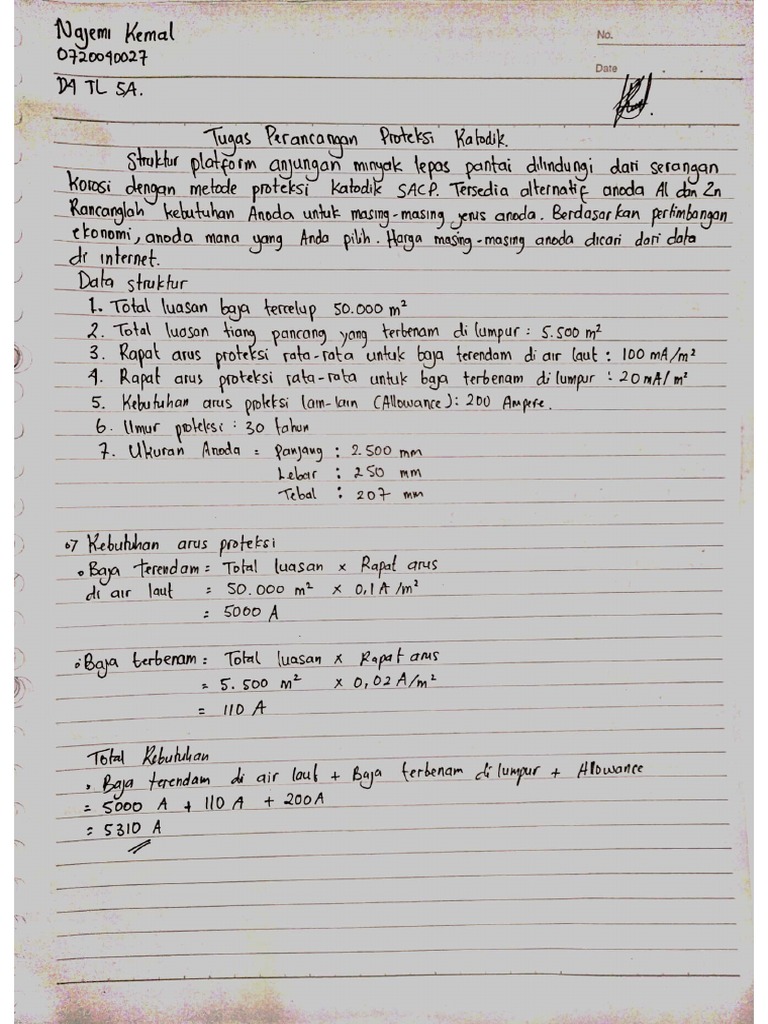 Najemi Kemal
0720040027
D4 TL 5A.
No.
Date
Tugas Perancangan Proteksi Katodik.
Struktur platform anjungan minyak lepas pantai dilindungi dari serangan
korosi dengan metode proteksi katodik SACP. Tersedia alternatif anoda Al dan Zn
Rancanglah kebutuhan Anoda untuk masing-masing jenis anoda. Berdasarkan pertimbangan
ekonomi, anoda mana yang Anda pilih. Harga masing-masing anoda dicari dari data
di internet.
Data struktur
1. Total luasan baja tercelup 50.000 m²
2. Total luasan tiang pancang yang terbenam di lumpur : 5.500 m²
3. Rapat arus proteksi rata-rata untuk baja terendam di air laut : 100 mA/m²
4. Rapat arus proteksi rata-rata untuk baja terbenam di lumpur : 20 mA/m²
5. Kebutuhan arus proteksi lain-lain (Allowance) : 200 Ampere.
6. Umur proteksi : 30 tahun
7. Ukuran Anoda = Panjang : 2.500 mm
Lebar : 250 mm
Tebal : 207 mm
Kebutuhan arus proteksi
• Baja terendam = Total luasan × Rapat arus
di air laut = 50.000 m² × 0,1 A/m²
= 5000 A
• Baja terbenam = Total luasan × Rapat arus
= 5.500 m² × 0,02 A/m²
= 110 A
Total Kebutuhan
• Baja terendam di air laut + Baja terbenam di lumpur + Allowance
= 5000 A + 110 A + 200 A
= 5310 A